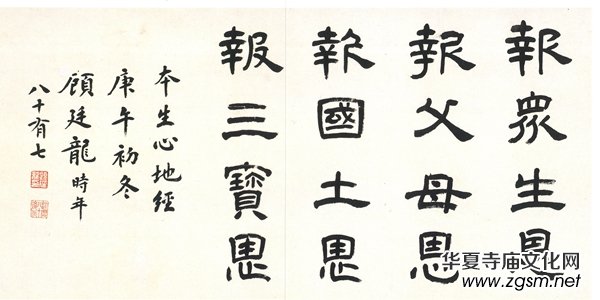 報眾生恩
報父母恩
報國土恩
報三寶恩
本生心地經
庚午初冬
顧廷龍時年
八十有七
华夏寺庙文化网
www.zgsm.net